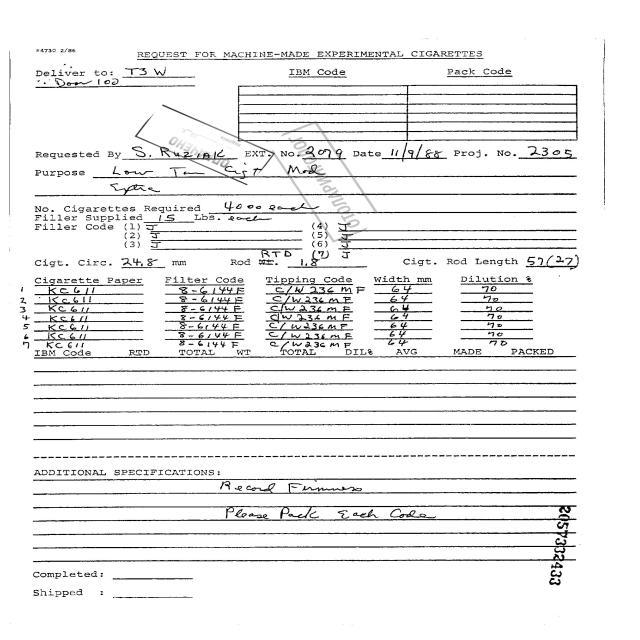 #4730 2/86
REQUEST FOR MACHINE-MADE EXPERIMENTAL CIGARETTES
Deliver to: T3 W IBM Code Pack Code
Door 102
Requested By S. Ruziak EXT. No. 2079 Date 11/9/88 Proj. No. 2305
Purpose Low Tar Cigt Mod
Extra
No. Cigarettes Required 4000 each
Filler Supplied 15 Lbs. each
Filler Code (1) J (4) J
(2) J (5) J
(3) J (6) J
RTD (7) J
Cigt. Circ. 24.8 mm Rod Wt. 1.8 Cigt. Rod Length 57(27)
Cigarette Paper Filter Code Tipping Code Width mm Dilution %
1 KC611 8-6144F C/W236MF 64 70
2 KC611 8-6144F C/W236MF 64 70
3 KC611 8-6144F C/W236MF 64 70
4 KC611 8-6144F C/W236MF 64 70
5 KC611 8-6144F C/W236MF 64 70
6 KC611 8-6144F C/W236MF 64 70
7 KC611 8-6144F C/W236MF 64 70
IBM Code RTD TOTAL WT TOTAL DIL% AVG MADE PACKED
ADDITIONAL SPECIFICATIONS:
Record Firmness
Please Pack Each Code
2057332433
Completed:
Shipped :